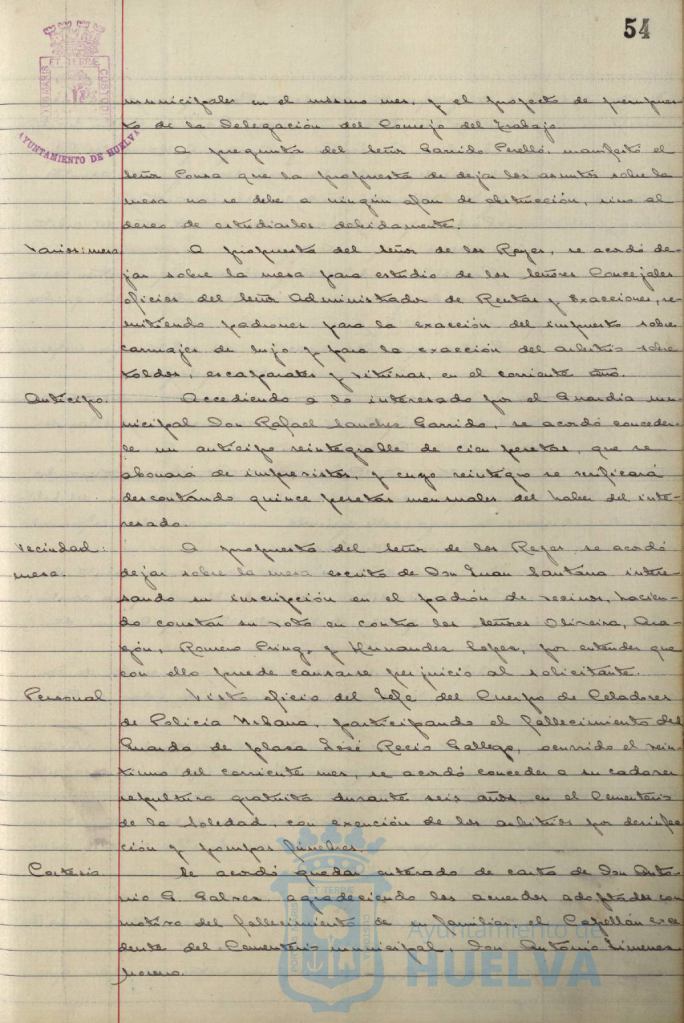 54
PORTUS MARIS ET TERRÆ CUSTODIA
AYUNTAMIENTO DE HUELVA
municipales en el mismo mes, y el proyecto de presupues-
to de la Delegación del Consejo del Trabajo.
A pregunta del Señor Garrido Perelló, manifestó el
Señor Ponsa que la propuesta de dejar los asuntos sobre la
mesa no se debe a ningún afan de obstrucción, sino al
deseo de estudiarlos debidamente.
Varios: mesa
A propuesta del Señor de los Reyes, se acordó de-
jar sobre la mesa para estudio de los Señores Concejales
oficios del Señor Administrador de Rentas y Exacciones, re-
mitiendo padrones para la exacción del impuesto sobre
carruajes de lujo y para la exacción del arbitrio sobre
toldos, escaparates y vitrinas, en el corriente año.
Anticipo.
Accediendo a lo interesado por el Guardia mu-
nicipal Don Rafael Sanchez Garrido, se acordó conceder-
le un anticipo reintegrable de cien pesetas, que se
abonará de imprevistos, y cuyo reintegro se verificará
descontando quince pesetas mensuales del haber del inte-
resado.
Vecindad:
mesa.
A propuesta del Señor de los Reyes, se acordó
dejar sobre la mesa escrito de Don Juan Santana intere-
sando su inscripción en el padrón de vecinos, hacien-
do constar su voto en contra los Señores Oliveira, Ara-
gón, Romero Pring, y Hernandez Lopez, por entender que
con ello puede causarse perjuicio al solicitante.
Personal
Visto oficio del Jefe del Cuerpo de Celadores
de Policía Urbana, participando el fallecimiento del
Guarda de plaza José Recio Gallego, ocurrido el vein-
tiuno del corriente mes, se acordó conceder a su cadaver
sepultura gratuita durante seis años, en el Cementerio
de la Soledad, con exención de los arbitrios por desinfec-
ción y pompas fúnebres.
Cortesia
Se acordó quedar enterado de carta de Don Anto-
nio G. Galvez, agradeciendo los acuerdos adoptados con
motivo del fallecimiento de su familiar, el Capellán exce-
dente del Cementerio municipal, Don Antonio Jimenez
Moreno.
Ayuntamiento de
HUELVA